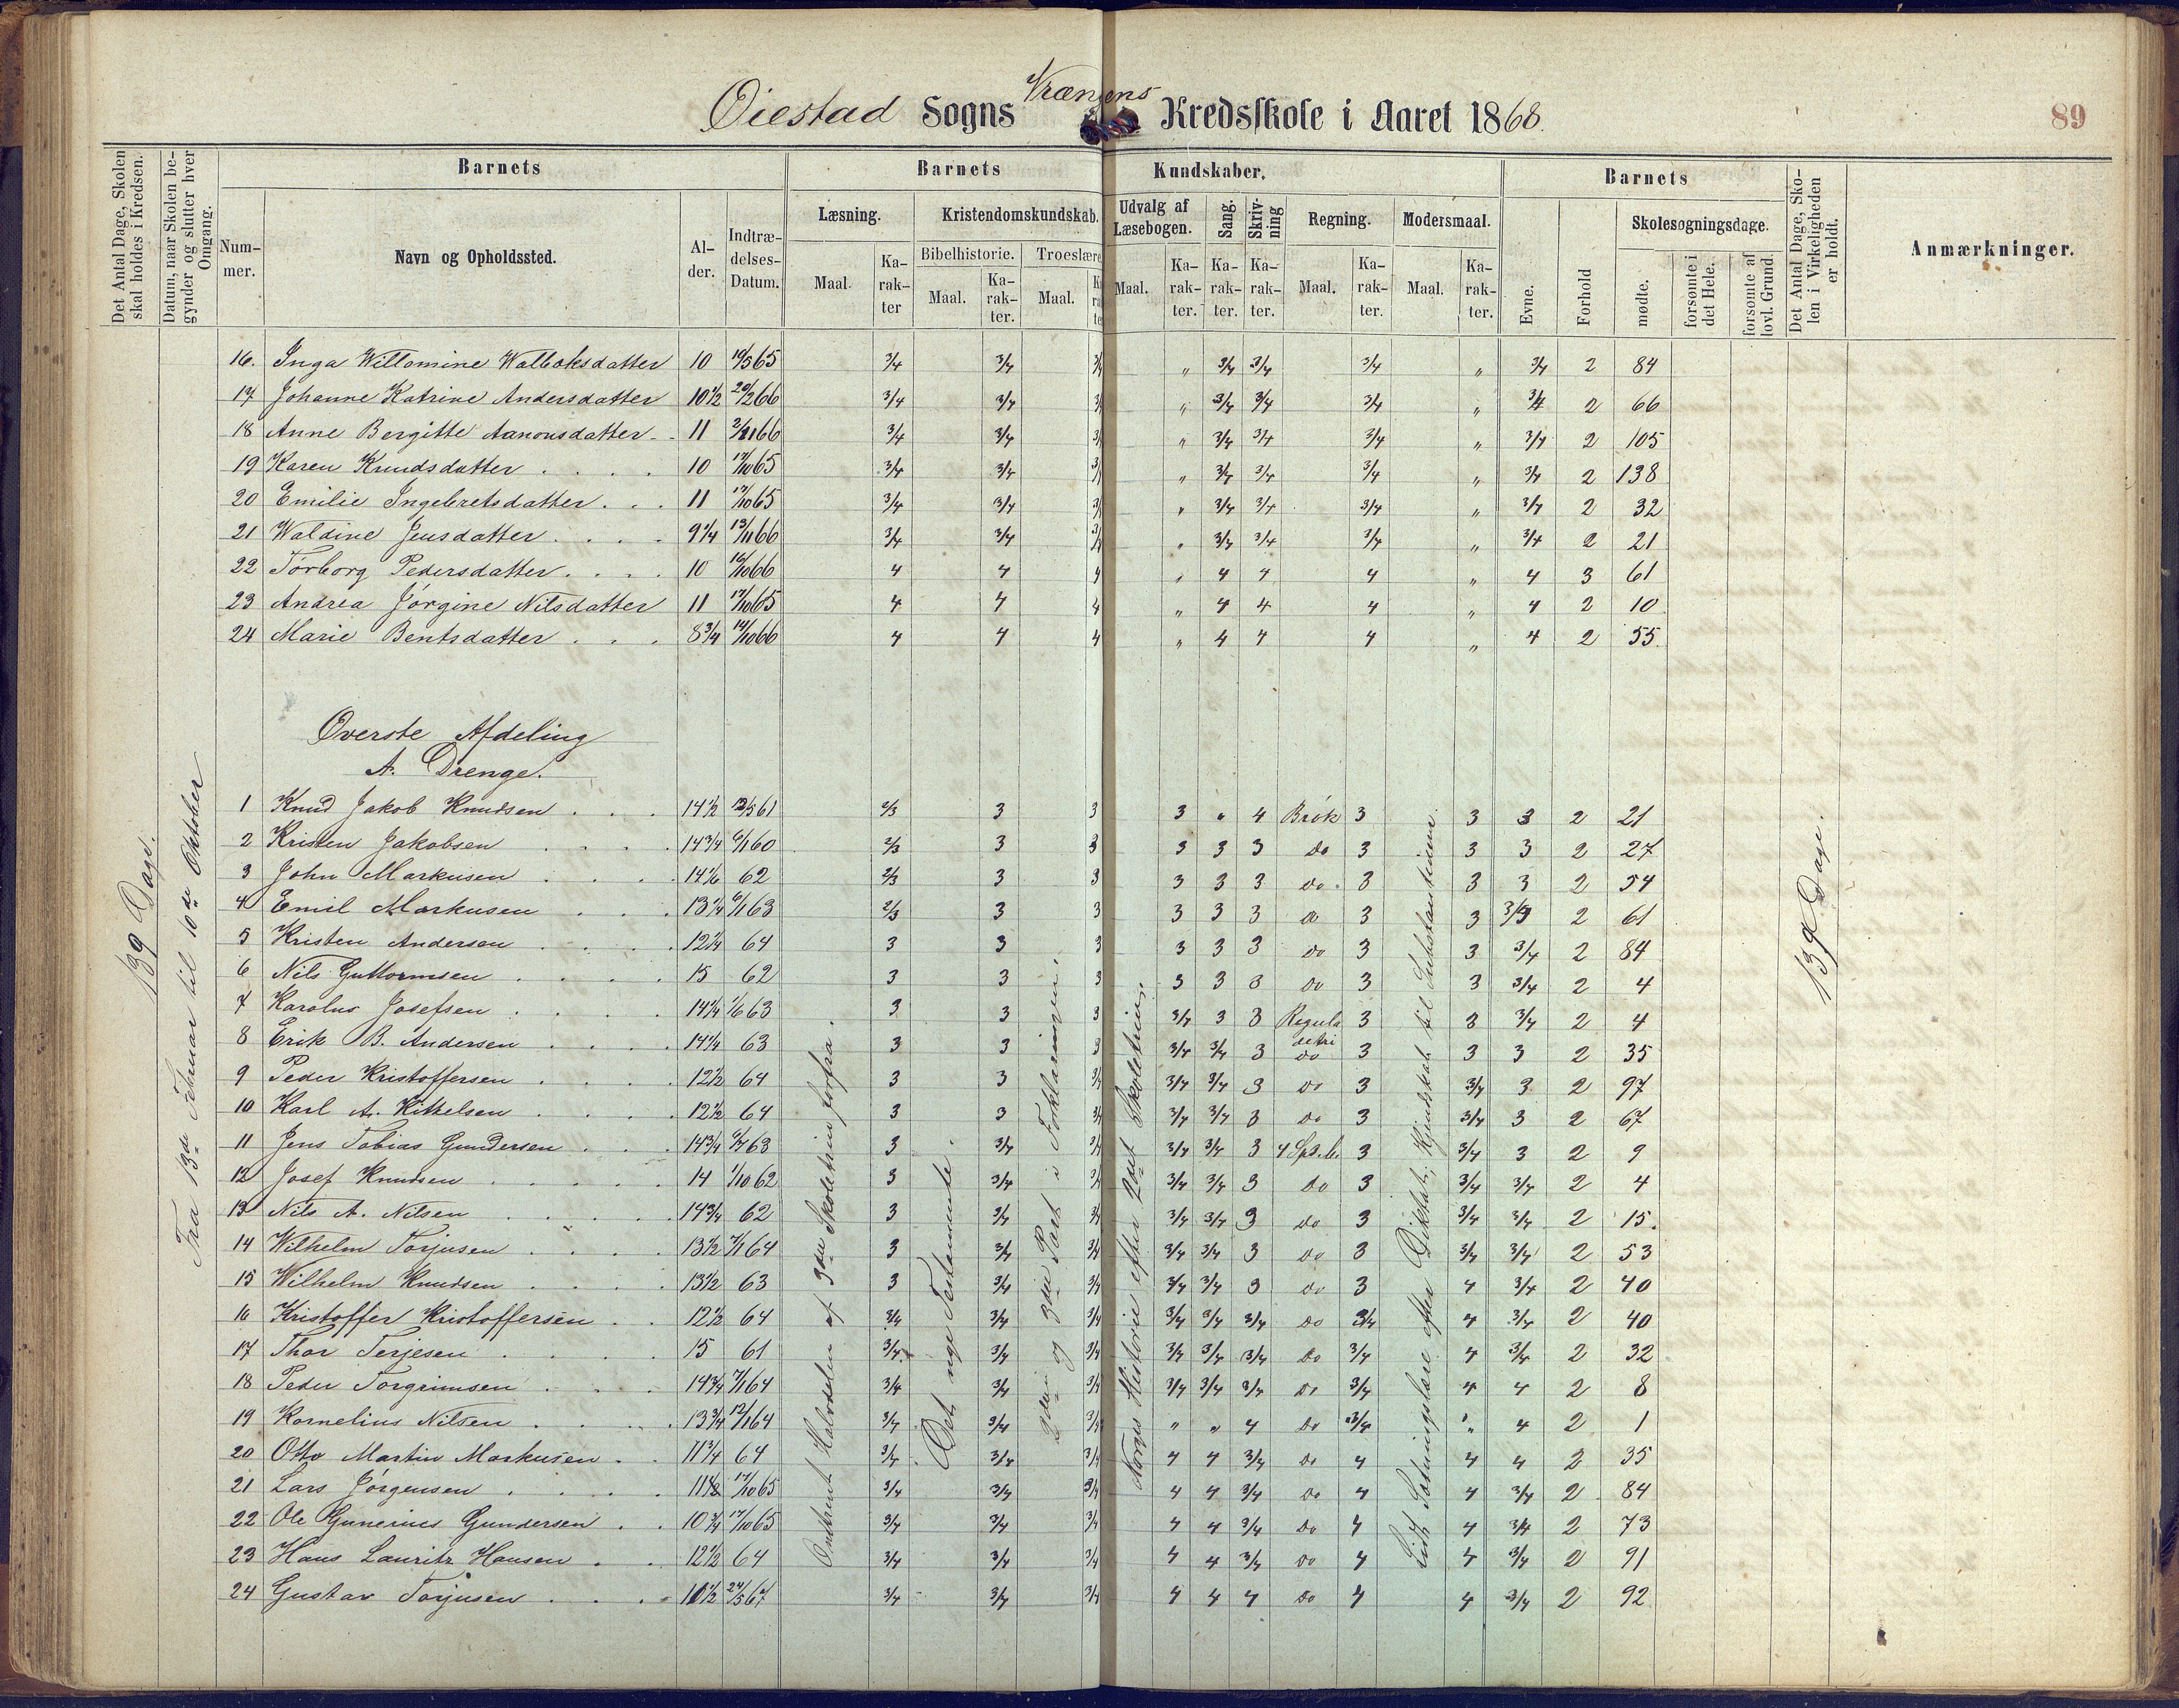 Øiestad Sogns Vrængens Kredsskole i Aaret 1868.
89
Det Antal Dage, Skolen skal holdes i Kredsen.
Datum, naar Skolen begynder og slutter hver Omgang.
Barnets
Barnets
Kundskaber.
Barnets
Det Antal Dage, Skolen i Virkeligheden er holdt.
Anmærkninger.
Nummer.
Navn og Opholdssted.
Alder.
Indtrædelses-Datum.
Læsning.
Kristendomskundskab.
Udvalg af Læsebogen.
Sang.
Skrivning
Regning.
Modersmaal.
Evne.
Forhold
Skolesøgningsdage.
Bibelhistorie.
Troeslære
Maal. Karakter
Maal. Karakter.
Maal.
Maal. Karakter.
Karakter.
Karakter.
Maal. Karakter.
Maal. Karakter.
mødte.
forsømte i det Hele.
forsømte af lovl. Grund.
16. Inga Willomine Walboksdatter 10 19/5 65 3/4 3/4 3/4 " 3/4 3/4 3/4 " 3/4 2 84
17 Johanne Katrine Andersdatter 10 1/2 20/2 66 3/4 3/4 3/4 " 3/4 3/4 3/4 " 3/4 2 66
18 Anne Bergitte Aanonsdatter 11 66 3/4 3/4 3/4 " 3/4 3/4 3/4 " 3/4 2 105
19 Karen Knudsdatter 10 17/10 65 3/4 3/4 3/4 " 3/4 3/4 3/4 " 3/4 2 138
20 Emilie Ingebretsdatter 11 17/10 65 3/4 3/4 3/4 " 3/4 3/4 3/4 " 3/4 2 32
21 Waldine Jensdatter 9 1/4 13/11 66 3/4 3/4 3/4 " 3/4 3/4 3/4 " 3/4 2 21
22 Torborg Pedersdatter 10 16/10 66 4 4 4 " 4 4 4 " 4 3 61
23 Andrea Jørgine Nilsdatter 11 17/10 65 4 4 4 " 4 4 4 " 4 2 10
24 Marie Bentsdatter 8 3/4 14/10 66 4 4 4 " 4 4 4 " 4 2 55.
Øverste Afdeling
A. Drenge.
139 Dage.
Fra 13de Februar til 10de Oktober
Omtrent Halvdelen af 3die Skoletrin forfra.
Det nye Testamente.
2den og 3die Part i Forklaringen.
Norges Historie efter 2det Skoletrin.
Lidt Sætningslære efter Diktat; Kjendskab til Substantiver
139 Dage.
1 Knud Jakob Knudsen 14 1/2 61 2/3 3 3 3 " 4 Brøk 3 3 3 2 21
2 Kristen Jakobsen 14 3/4 6/1 60 2/3 3 3 3 3 3 Do 3 3 3 2 27
3 John Markusen 62 2/3 3 3 3 3 3 Do. 3 3 3 2 54
4 Emil Markusen 13 1/4 6/1 63 2/3 3 3 3 3 3 Do 3 3 2 61
5 Kristen Andersen 12 1/4 64 3 3 3 3 3 3 Do 3 3 3/4 2 84
6 Nils Guttormsen 15 62 3 3 3 3 3 3 Do 3 3 3/4 2 4
7 Karolus Josefsen 14 1/4 1/6 63 3 3 3 3/4 3 3 Regula detri 3 3 3/4 2 4
8 Erik B. Andersen 14 1/4 63 3 3 3 3/4 3/4 3 Do 3 3 3 2 35
9 Peder Kristoffersen 12 1/2 64 3 3 3/4 3/4 3/4 3 Do 3 3/4 3 2 97
10 Karl A. Kittelsen 12 1/2 64 3 3 3/4 3/4 3/4 3 Do 3 3/4 3 2 67
11 Jens Tobias Gundersen 14 3/4 63 3 3/4 3/4 3/4 3/4 3 4 Sps. b. 3 3/4 3 2 9
12 Josef Knudsen 14 1/10 62 3 3/4 3/4 3/4 3/4 3 Do 3 3/4 3/4 2 4
13 Nils A. Nilsen 14 3/4 62 3 3/4 3/4 3/4 3/4 3 Do 3 3/4 3/4 2 15.
14 Wilhelm Torjusen 13 1/2 7/1 64 3 3/4 3/4 3/4 3/4 3 Do 3 3/4 3/4 2 53
15 Wilhelm Knudsen 13 1/2 63 3 3/4 3/4 3/4 3/4 3 Do 3 4 3/4 2 40
16 Kristoffer Kristoffersen 12 1/2 64 3/4 3/4 3/4 3/4 3/4 3/4 Do 3/4 4 3/4 2 40
17 Thor Terjesen 15 61 3/4 3/4 3/4 3/4 3/4 3/4 Do 3/4 4 3/4 2 32
18 Peder Torgrimsen 14 3/4 7/1 64 3/4 3/4 3/4 3/4 3/4 3/4 Do 3/4 4 4 2 8
19 Kornelius Nilsen 13 3/4 12/1 64 3/4 3/4 3/4 " " 4 Do 3/4 " 4 2 1
20 Otto Martin Markusen 11 3/4 64 3/4 3/4 3/4 4 4 3/4 Do 4 4 4 2 35
21 Lars Jørgensen 17/10 65 3/4 3/4 3/4 4 4 3/4 Do 4 4 3/4 2 84
22 Ole Gunerius Gundersen 10 3/4 17/10 65 3/4 3/4 3/4 4 4 3/4 Do 4 4 3/4 2 73
23 Hans Lauritz Hansen 12 1/2 64 3/4 3/4 3/4 4 4 3/4 Do 4 4 3/4 2 91
24 Gustav Torjusen 24/5 67 3/4 3/4 3/4 4 4 4 Do 4 4 3/4 2 92